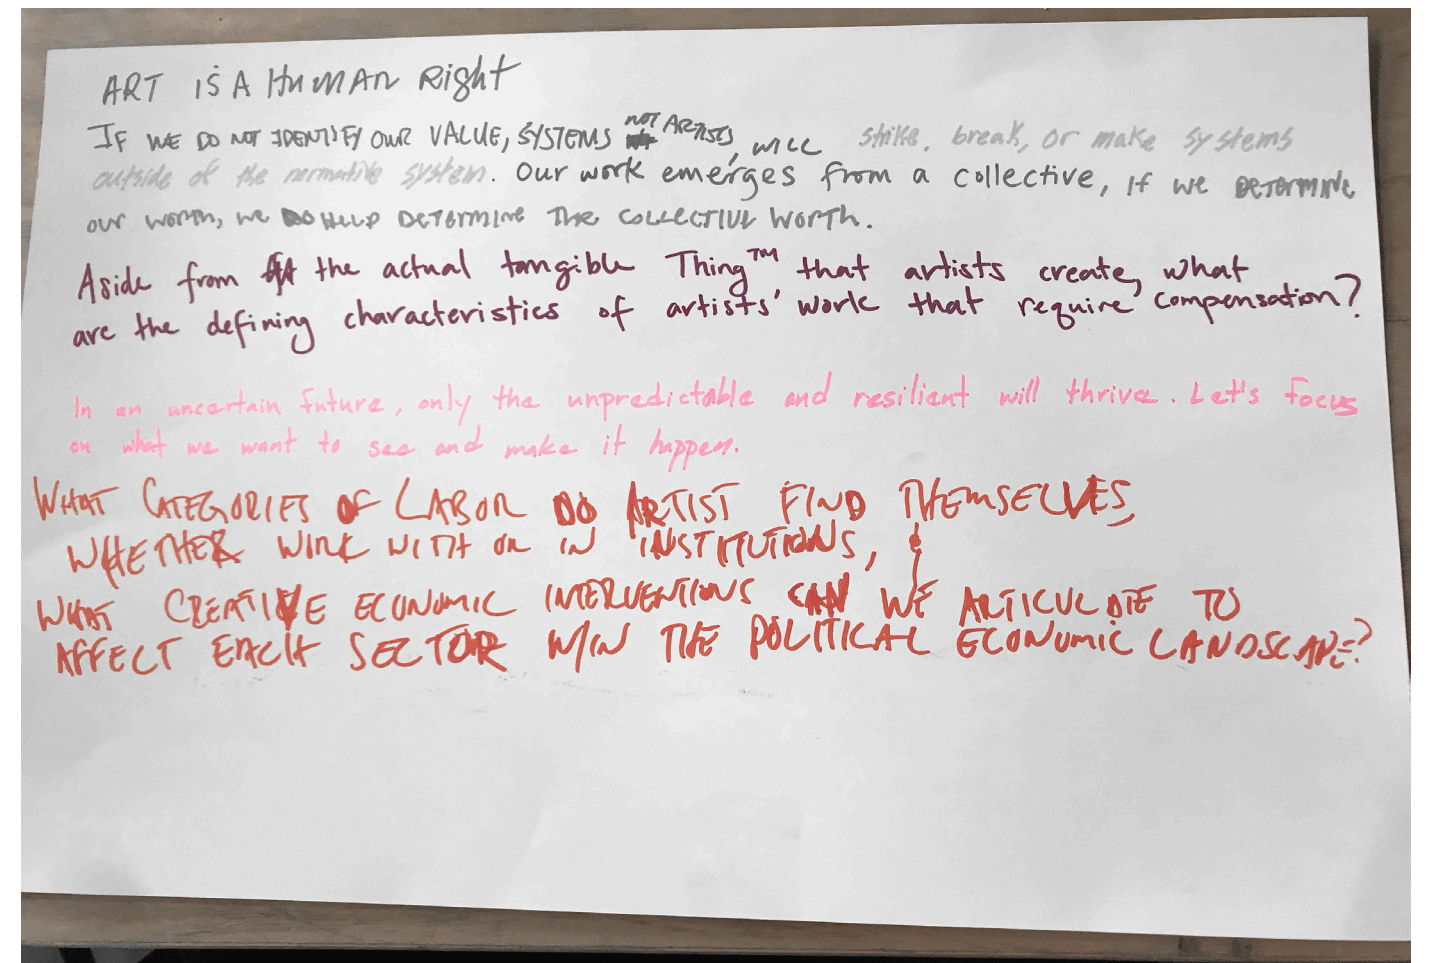 ART IS A HUMAN Right
IF WE DO NOT IDENTIFY OUR VALUE, SYSTEMS NOT ARTISTS, WILL strike, break, or make systems
outside of the normative system. Our work emerges from a collective, If we DETERMINE
our worth, we DO HELP DETERMINE THE COLLECTIVE WORTH.
Aside from the actual tangible Thing™ that artists create, what
are the defining characteristics of artists' work that require compensation?
In an uncertain future, only the unpredictable and resilient will thrive. Let's focus
on what we want to see and make it happen.
WHAT CATEGORIES OF LABOR DO ARTIST FIND THEMSELVES,
WHETHER WORK WITH OR IN INSTITUTIONS, &
WHAT CREATIVE ECONOMIC INTERVENTIONS CAN WE ARTICULATE TO
AFFECT EACH SECTOR W/IN THE POLITICAL ECONOMIC LANDSCAPE?